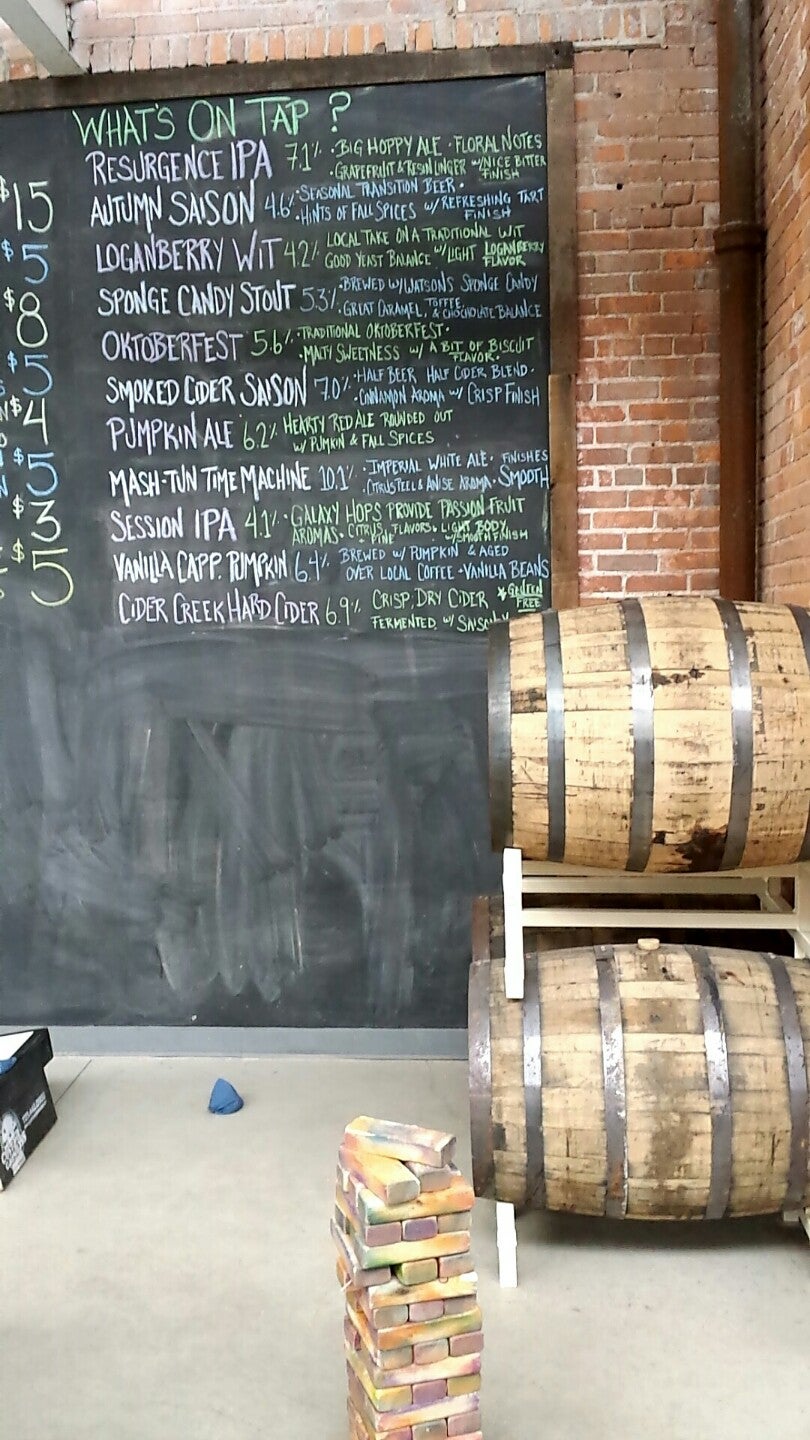 WHAT'S ON TAP ?
RESURGENCE IPA 7.1% · BIG HOPPY ALE · FLORAL NOTES
· GRAPEFRUIT & RESIN LINGER W/ NICE BITTER FINISH
$15
AUTUMN SAISON 4.6% · SEASONAL TRANSITION BEER ·
· HINTS OF FALL SPICES W/ REFRESHING TART FINISH
$5
LOGANBERRY WIT 4.2% LOCAL TAKE ON A TRADITIONAL WIT
GOOD YEAST BALANCE W/ LIGHT LOGANBERRY FLAVOR
$8
SPONGE CANDY STOUT 5.3% · BREWED W/ WATSON'S SPONGE CANDY
· GREAT CARAMEL, TOFFEE, & CHOCHOLATE BALANCE
OKTOBERFEST 5.6% · TRADITIONAL OKTOBERFEST ·
· MALTY SWEETNESS W/ A BIT OF BISCUIT FLAVOR ·
$5
SMOKED CIDER SAISON 7.0% · HALF BEER HALF CIDER BLEND ·
· CINNAMON AROMA W/ CRISP FINISH
$4
PUMPKIN ALE 6.2% HEARTY RED ALE ROUNDED OUT
W/ PUMKIN & FALL SPICES
$5
MASH-TUN TIME MACHINE 10.1% · IMPERIAL WHITE ALE · FINISHES
& ANISE AROMA · SMOOTH
$3
SESSION IPA 4.1% · GALAXY HOPS PROVIDE PASSION FRUIT
AROMAS · CITRUS, PINE FLAVORS · LIGHT BODY W/ SMOOTH FINISH
$5
VANILLA CAPP. PUMPKIN 6.4% BREWED W/ PUMPKIN & AGED
OVER LOCAL COFFEE + VANILLA BEANS
CIDER CREEK HARD CIDER 6.9% CRISP, DRY CIDER * GLUTEN FREE
FERMENTED W/